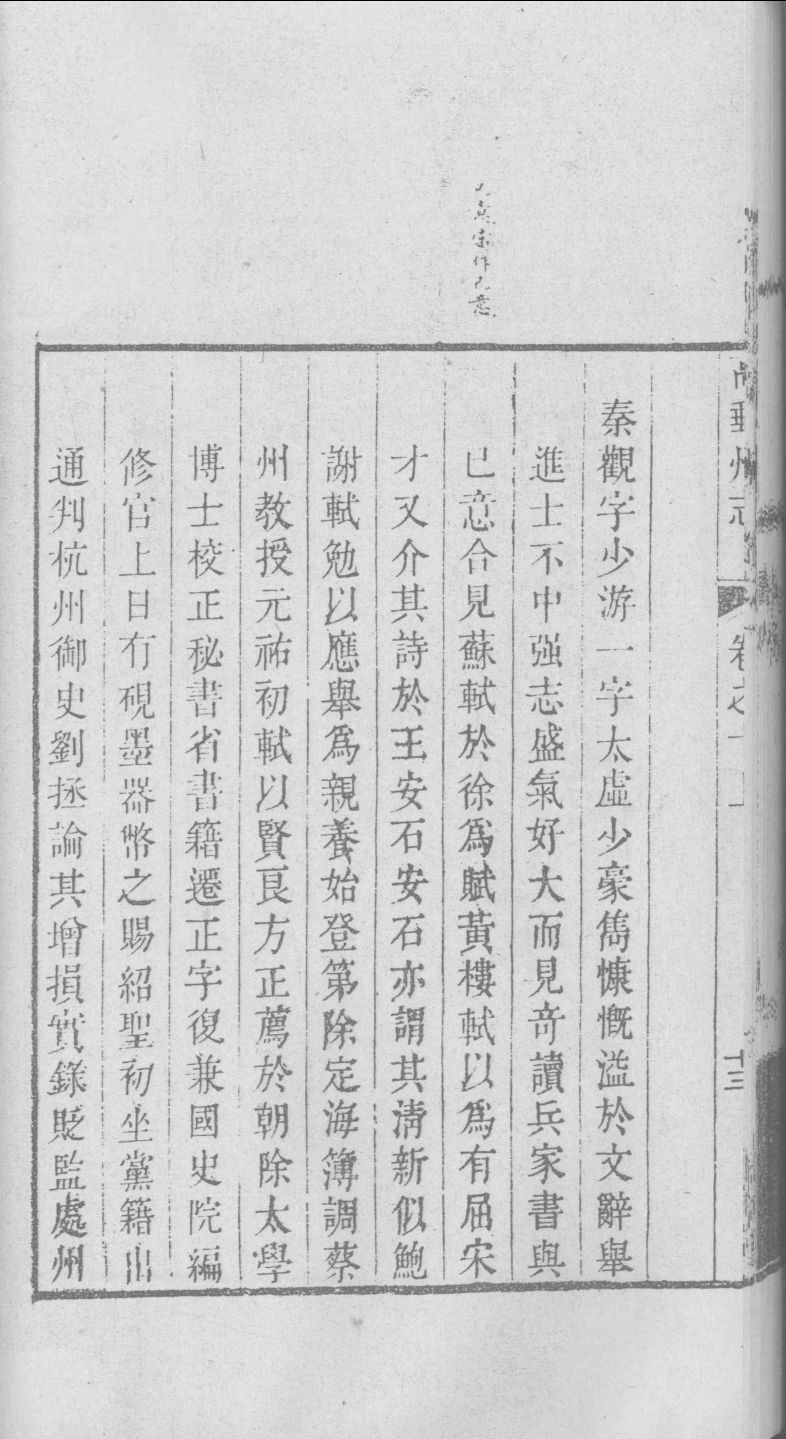 秦觀字少游一字太虛少豪雋慷慨溢於文辭舉
進士不中强志盛氣好大而見奇讀兵家書與
已意合見蘇軾於徐爲賦黃樓軾以爲有屈宋
才又介其詩於王安石安石亦謂其清新似鮑
謝軾勉以應舉爲親養始登第除定海簿調蔡
州教授元祐初軾以賢良方正薦於朝除太學
博士校正秘書省書籍遷正字復兼國史院編
修官上日有硯墨器幣之賜紹聖初坐黨籍出
通判杭州御史劉拯論其增損實錄貶監處州
州志
卷之十
十三
作己意